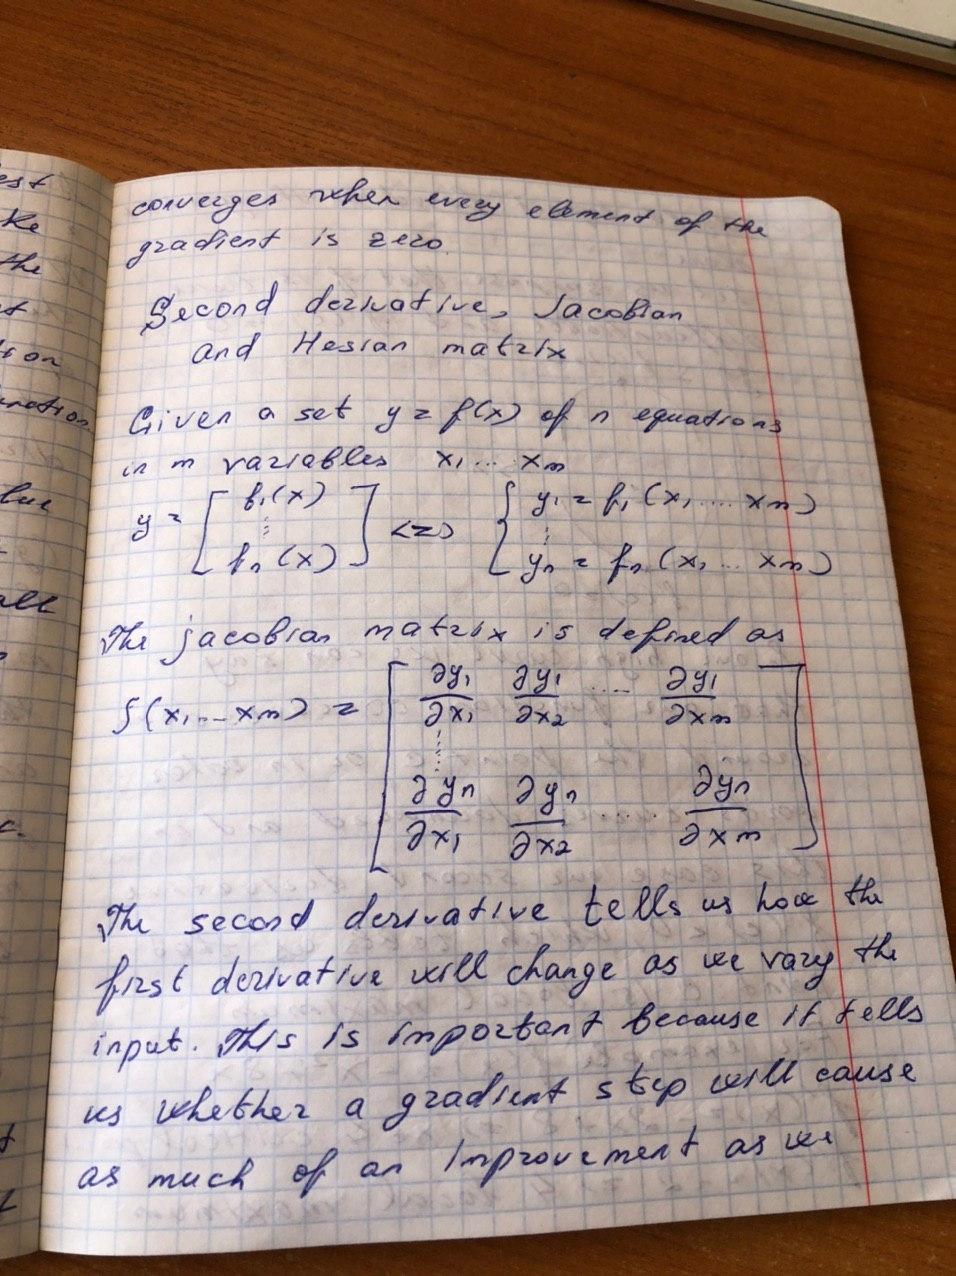 est
ke
the
st
tion
unction
lue
all
c.
converges when every element of the
gradient is zero.
Second derivative, Jacobian
and Hesian matrix
Given a set y = f(x) of n equations
in m variables x₁ ... xm
y = [ f₁(x) ⋮ fn(x) ] <=> { y₁ = f₁(x₁ ... xm) ⋮ yn = fn(x₁ ... xm)
The jacobian matrix is defined as
J(x₁ ... xm) = [ ∂y₁/∂x₁ ∂y₁/∂x₂ .... ∂y₁/∂xm ⋮ ∂yn/∂x₁ ∂yn/∂x₂ .... ∂yn/∂xm ]
The second derivative tells us how the
first derivative will change as we vary the
input. This is important because it tells
us whether a gradient step will cause
as much of an improvement as we